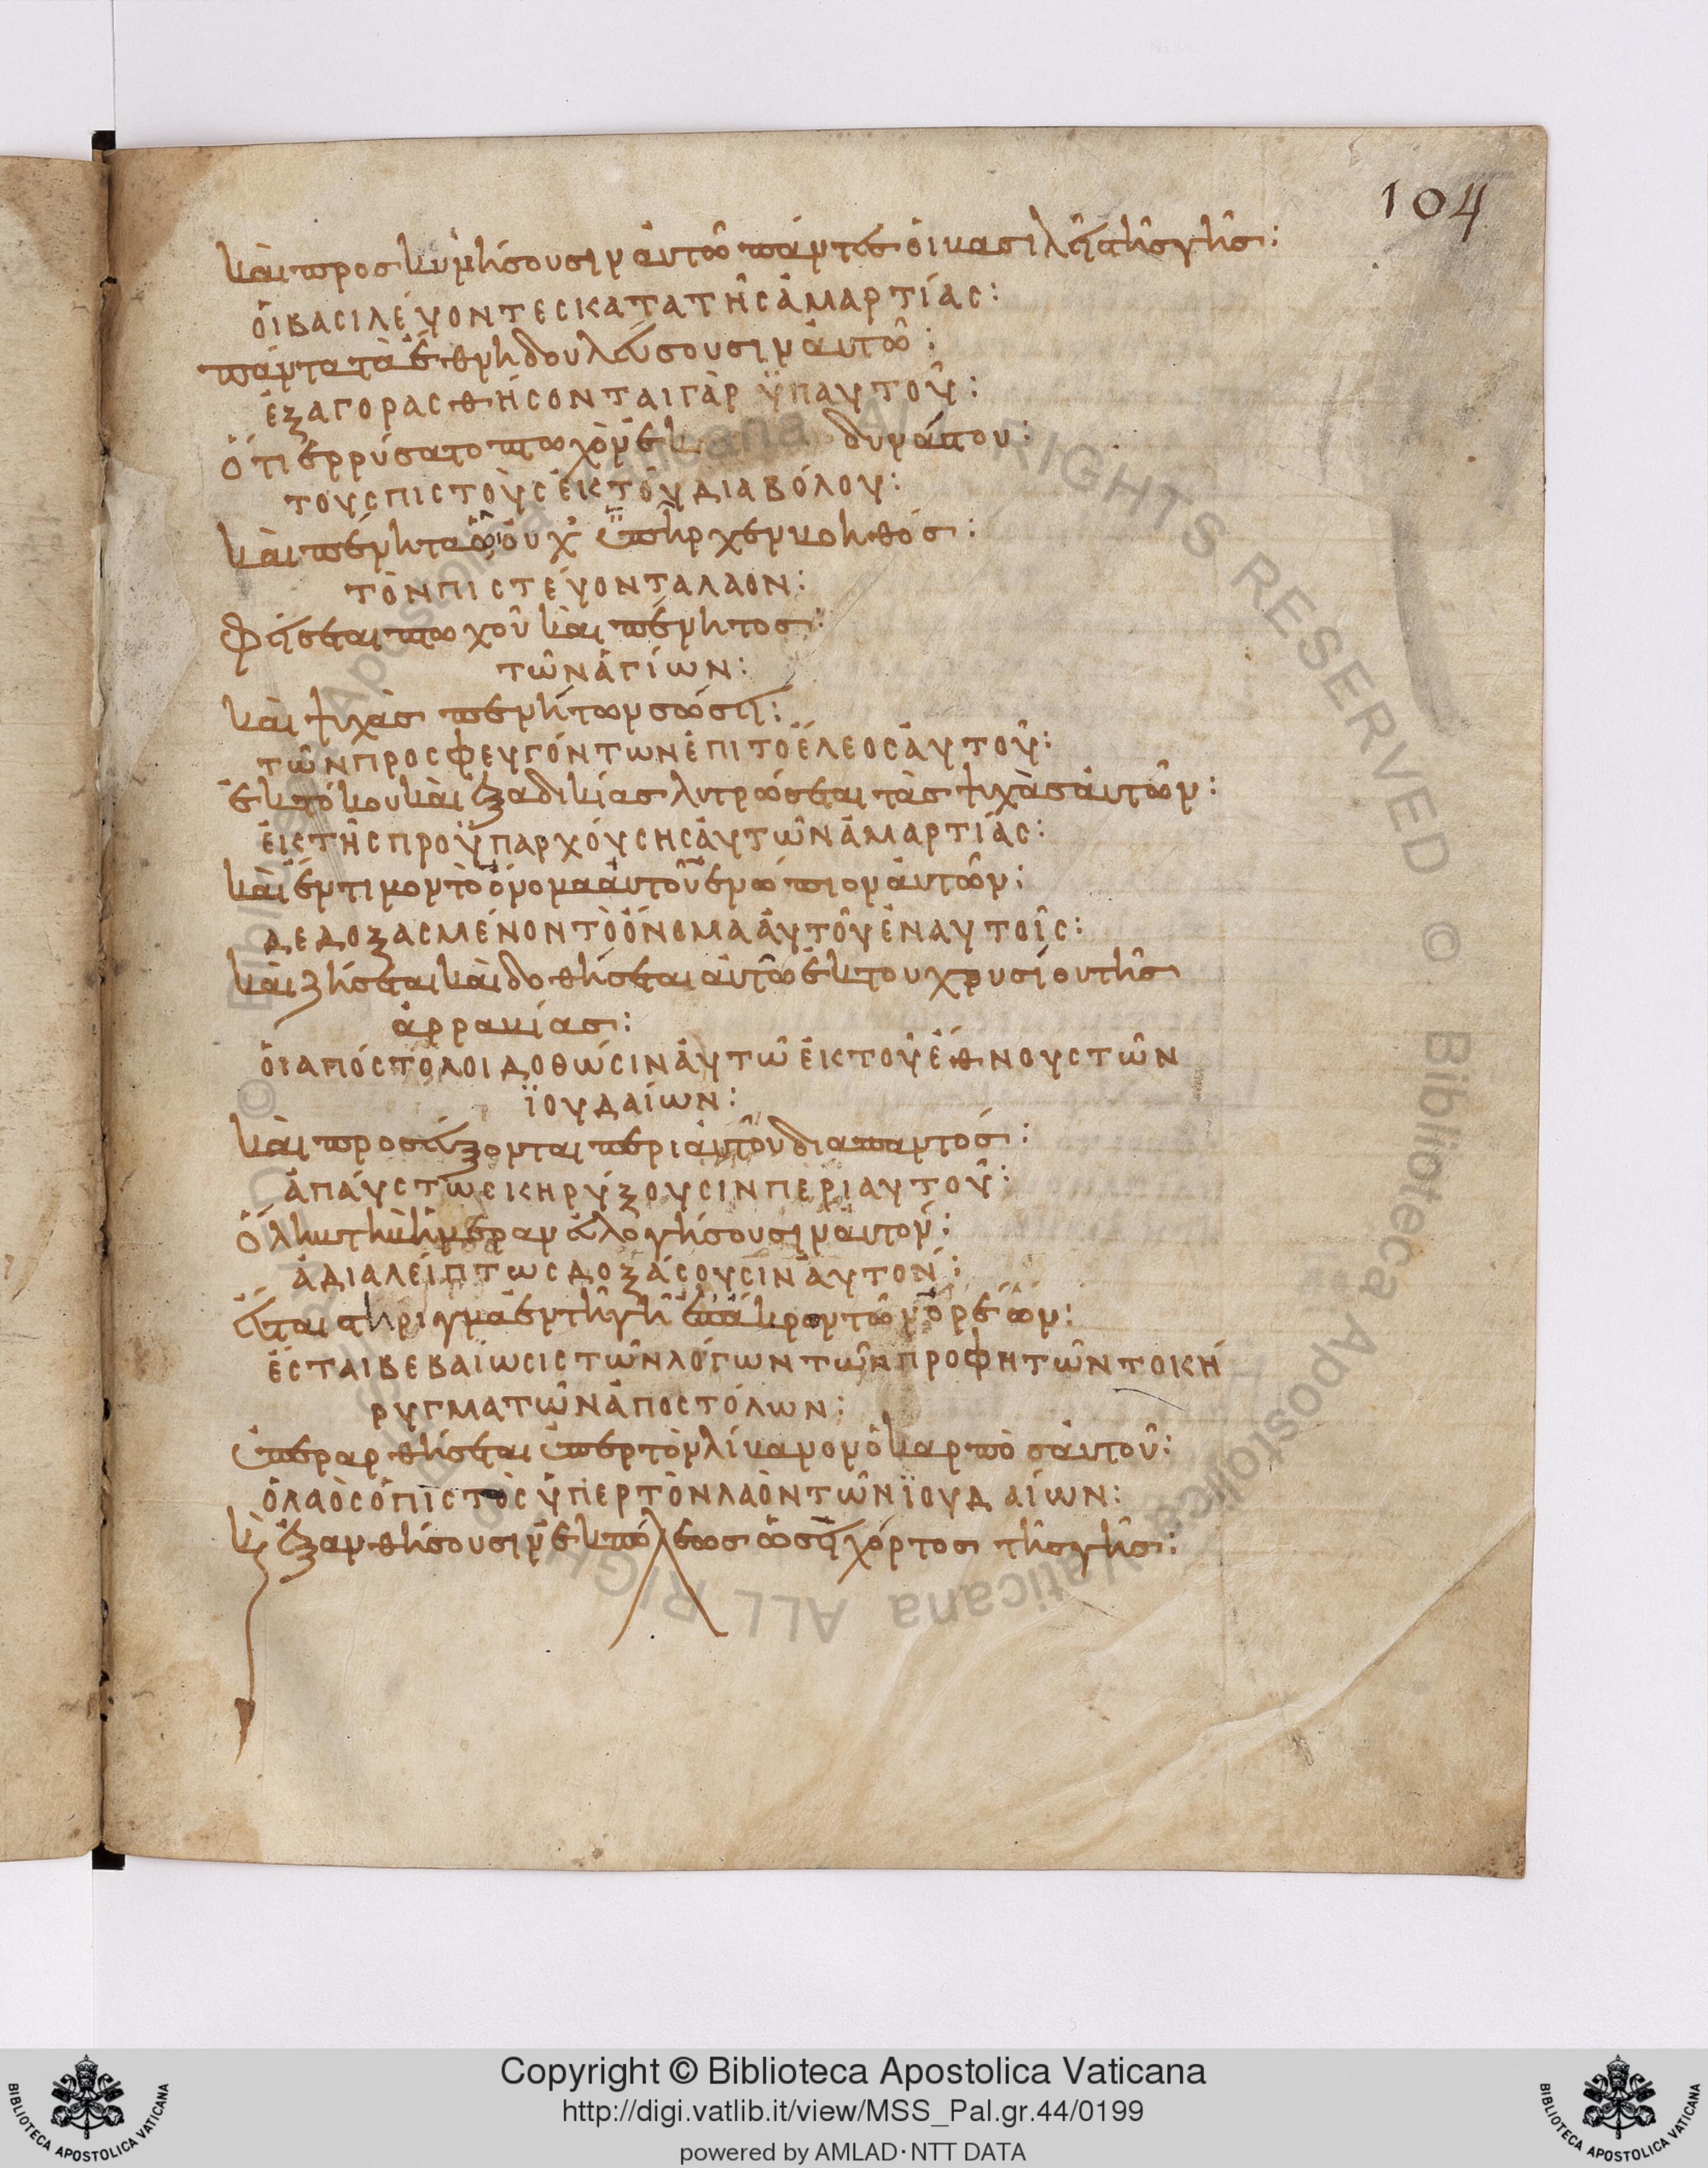 104
και προσκυνήσουσιν ἀυτῶ πάντες ὁι βασιλεῖς τῆς γῆς:
ὁι βασιλεύοντες κατα τῆς ἁμαρτίας:
πάντα τὰ ἔθνη δουλεύσουσιν ἀυτῶ:
ἐξαγορασθήσονται γὰρ ϋπ αυτοῦ:
ὅτι ἐρρύσατο πτωχὸν ἐκ δυνάστου:
τους πιστοὺς ἐκ τοῦ διαβόλου:
και πένητα ὧ οὐχ ὑπῆρχεν βοηθός:
τὸν πιστεύοντα λαον:
φείσεται πτωχοῦ και πένητος:
τῶν ἁγίων:
και ψυχὰς πενήτων σώσει:
τῶν προσφευγόντων ἐπι το ἔλεος ἀυτοῦ:
ἐκ τόκου και ἐξ αδικίας λυτρώσεται τὰς ψυχὰς ἀυτῶν:
ἐκ τῆς προϋπαρχούσης ἀυτῶν ἁμαρτίας:
και ἔντιμον τὸ ὄνομα ἀυτοῦ ἐνώπιον ἀυτῶν:
δεδοξασμένον τὸ ὄνομα ἀυτοῦ ἐν αυτοῖς:
και ζήσεται και δοθήσεται ἀυτῶ ἐκ του χρυσίου τῆς
ἀρραβίας:
ὁι απόστολοι δοθώσιν ἀυτῶ ἐκ τοῦ ἔθνους τῶν
ϊουδαίων:
και προσεύξονται περι ἀυτοῦ διαπαντός:
ἀπαύστως κηρύξουσιν περι αυτοῦ:
ὅλην την ἡμέραν ἐυλογήσουσιν ἀυτον:
ἀδιαλείπτως δοξάσουσιν ἀυτον:
ἔσται στήριγμα ἐν τῆ γῆ ἐπ ἄκρον τῶν ὀρέων:
ἔσται βεβαίωσις τῶν λόγων τῶν προφητῶν το κή
ρυγμα τῶν ἀποστόλων:
ὑπεραρθήσεται ὑπερ τὸν λίβανον ὁ καρπὸς ἀυτοῦ:
ὁ λαὸς ὁ πιστὸς ὑπερ τὸν λαὸν τῶν ϊουδαίων:
κ ἐξανθήσουσιν ἐκ πόλεως ὡσει χόρτος τῆς γῆς:
Copyright © Biblioteca Apostolica Vaticana
http://digi.vatlib.it/view/MSS_Pal.gr.44/0199
powered by AMLAD·NTT DATA
BIBLIOTECA APOSTOLICA VATICANA
BIBLIOTECA APOSTOLICA VATICANA